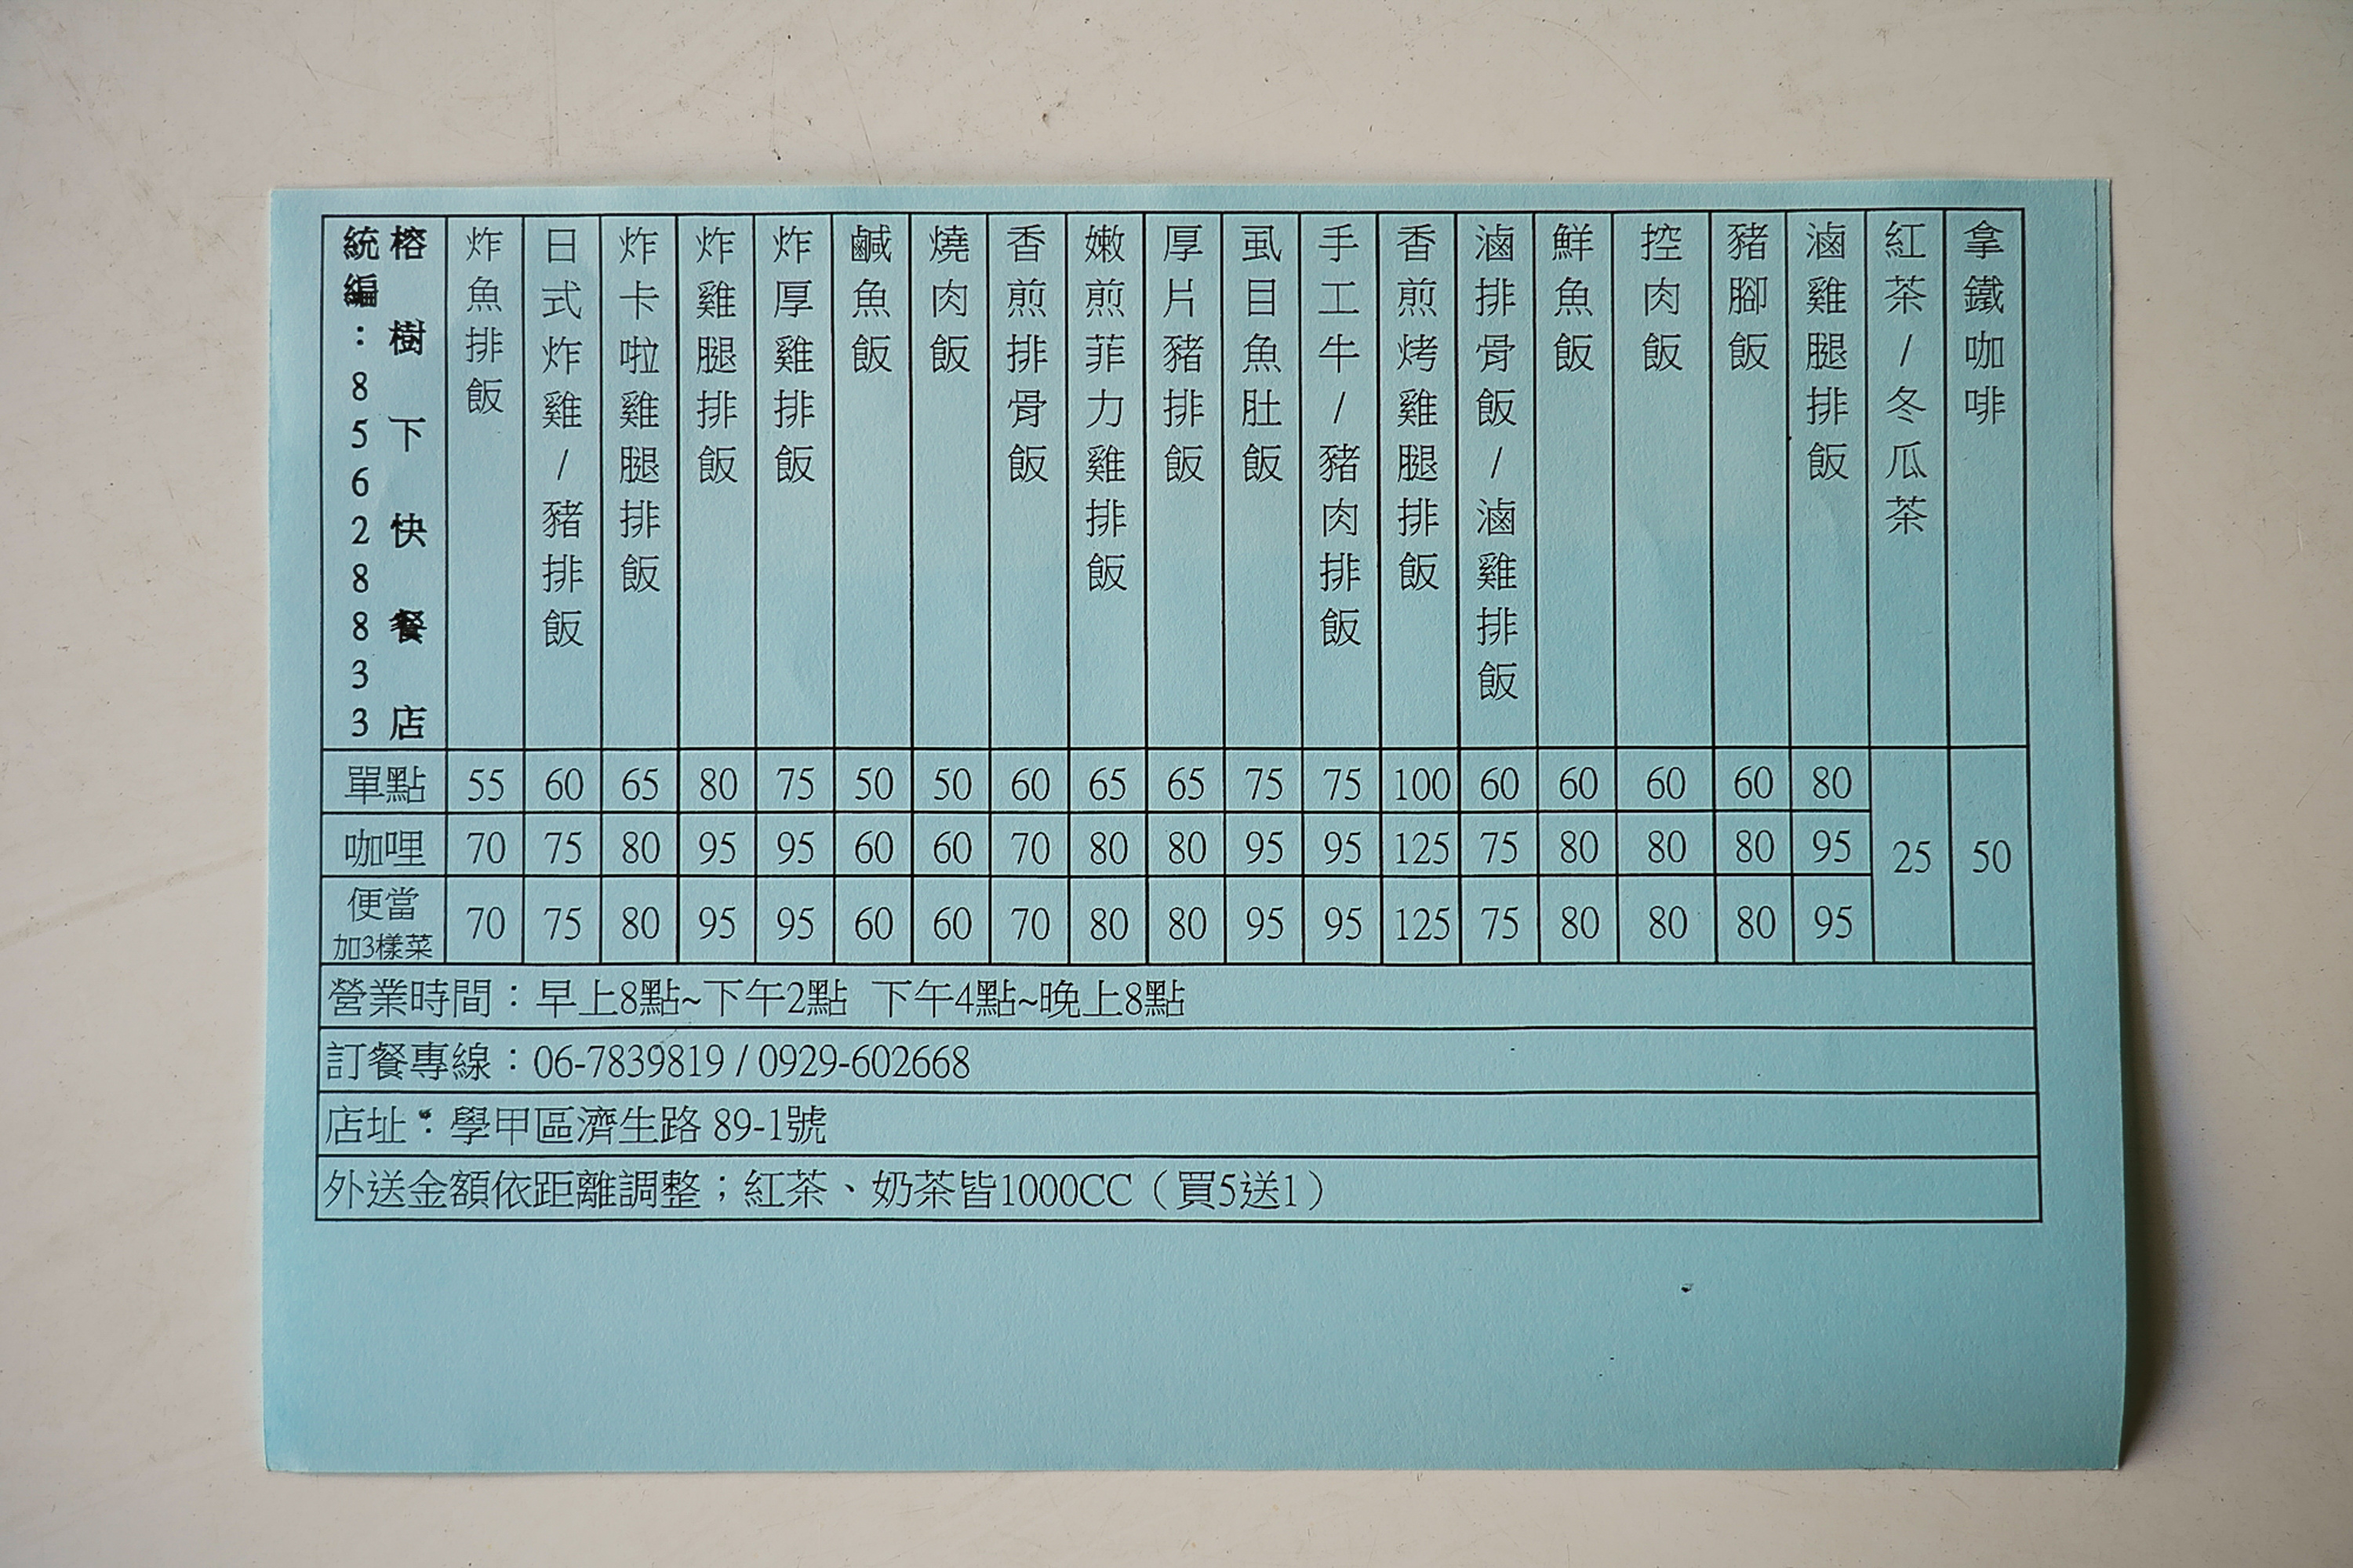 榕樹下快餐店
統編:85628833
炸魚排飯
日式炸雞/豬排飯
炸卡啦雞腿排飯
炸雞腿排飯
炸厚雞排飯
鹹魚飯
燒肉飯
香煎排骨飯
嫩煎菲力雞排飯
厚片豬排飯
虱目魚肚飯
手工牛/豬肉排飯
香煎烤雞腿排飯
滷排骨飯/滷雞排飯
鮮魚飯
控肉飯
豬腳飯
滷雞腿排飯
紅茶/冬瓜茶
拿鐵咖啡
單點 55 60 65 80 75 50 50 60 65 65 75 75 100 60 60 60 60 80
咖哩 70 75 80 95 95 60 60 70 80 80 95 95 125 75 80 80 80 95 25 50
便當
加3樣菜 70 75 80 95 95 60 60 70 80 80 95 95 125 75 80 80 80 95
營業時間：早上8點~下午2點 下午4點~晚上8點
訂餐專線：06-7839819 / 0929-602668
店址：學甲區濟生路 89-1號
外送金額依距離調整；紅茶、奶茶皆1000CC（買5送1）